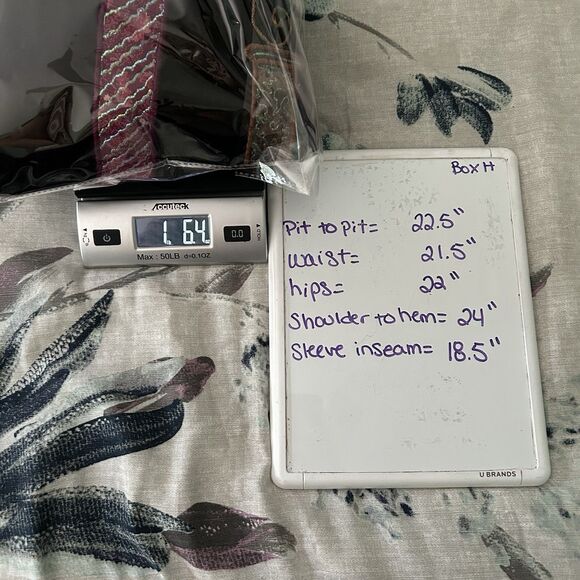 Accuteck
1. 6.4
0.0
HOLD
Max : 50LB d=0.1OZ
Box H
Pit to pit= 22.5"
waist= 21.5"
hips= 22"
Shoulder to hem= 24"
Sleeve inseam= 18.5"
U BRANDS